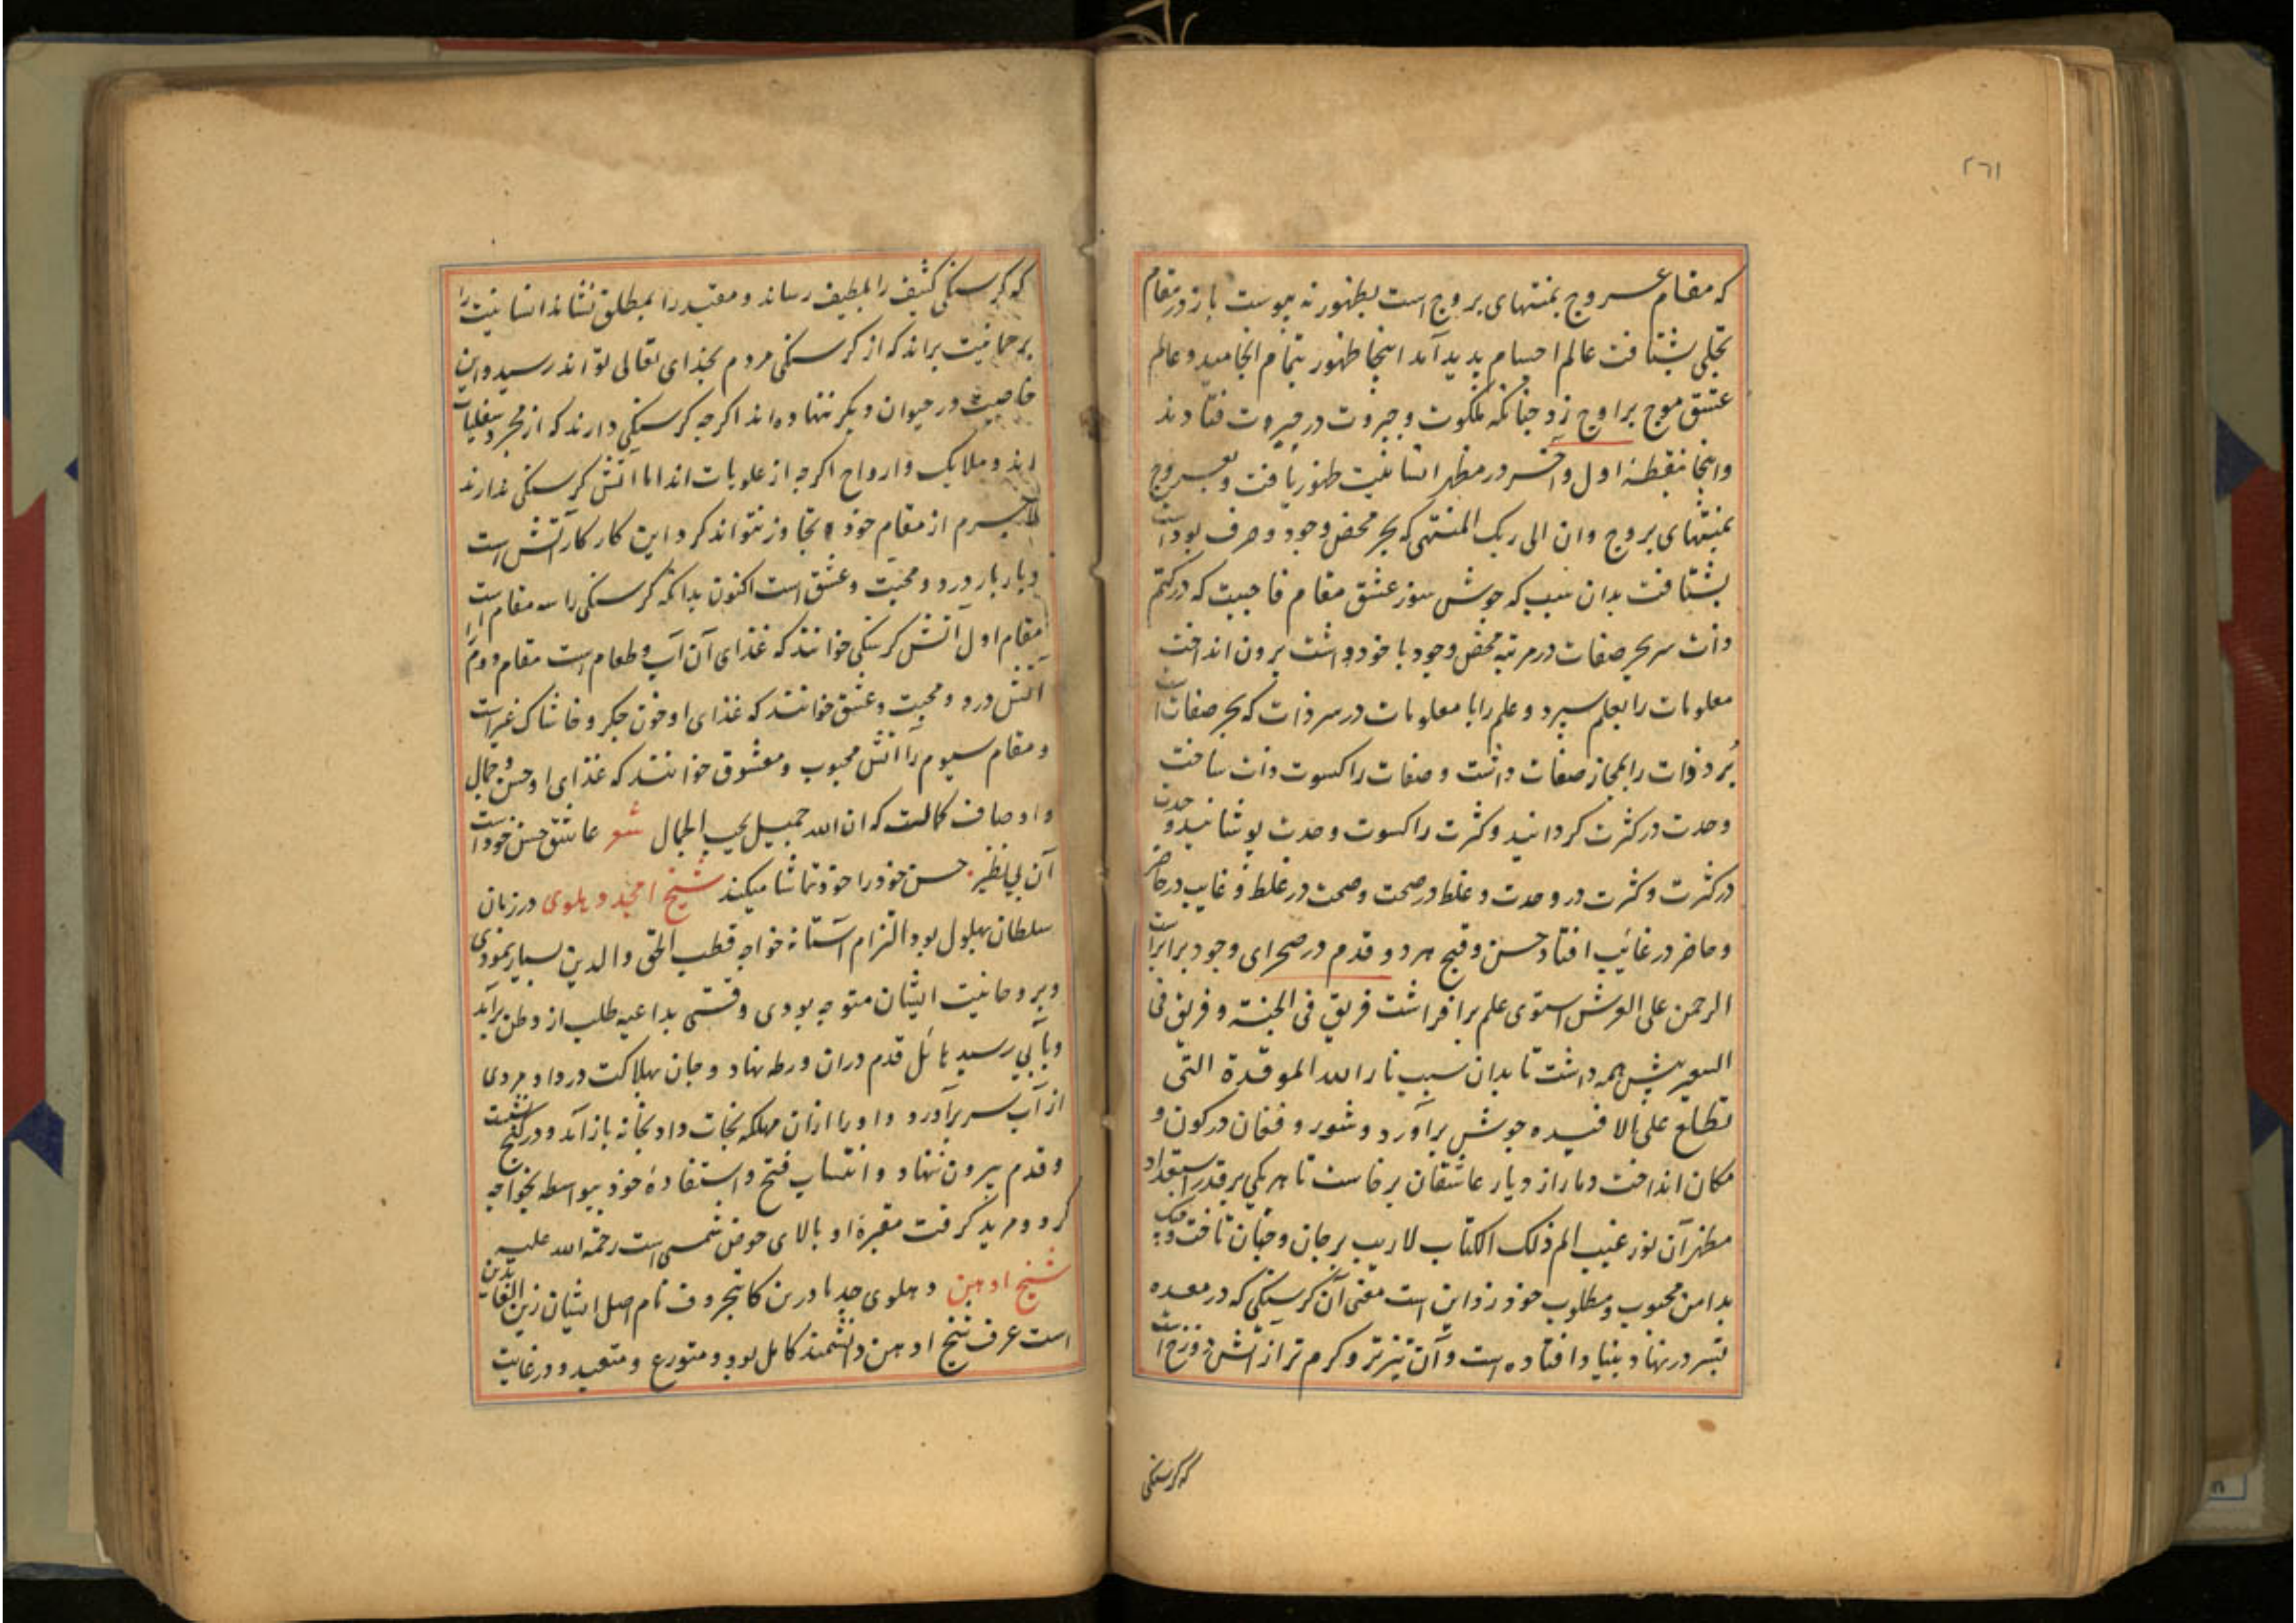 ۲۶۱
که مقام عروج بمنتهای بروج است بظهور نه پیوست باز در مقام
تجلی بشتافت عالم اجسام پدید آمد اینجا ظهور بتمام انجامید و عالم
عشق موج براوج زد چنانکه ملکوت و جبروت در حیروت فتادند
و اینجا نقطهٔ اول و آخر در مظهر انسانیت ظهور یافت و بعروج
بمنتهای بروج وان الی ربک المنتهی که بحر محض وجود و صرف بود است
بشتافت بدان سبب که جوش سوز عشق مقام فاحببت که در کتم
ذات سر بحر صفات در مرتبه محض وجود با خود داشت برون انداخت
معلومات را بعلم سپرد و علم را با معلومات در سر ذات که بحر صفات است
برد ذات را بمجاز صفات داشت و صفات را کسوت ذات ساخت
وحدت در کثرت کردانید و کثرت را کسوت وحدت پوشانید وحدت
در کثرت و کثرت در وحدت و غلط در صحت و صحت در غلط و غایب در حاضر
و حاضر در غائب افتاد حسن و قبح هر دو قدم در صحرای وجود برابر است
الرحمن علی العرش استوی علم برافراشت فریق فی الجنة و فریق فی
السعیر پیش همه داشت تا بدان سبب نار الله الموقدة التی
تطلع علی الافئیده جوش برآورد و شور و فغان در کون و
مکان انداخت دمار از دیار عاشقان برخاست تا هر یکی بر قدر استعداد
مظهر آن نور غیب الم ذلک الکتاب لاریب بر جان و جنان تافت و چنک
بدامن محبوب و مطلوب خود زد این است معنی آن کرسنکی که در معده
بشر در نهاد بنیاد افتاده است و آن تیزتر و کرم تر از آتش دوزخ است
که کرسنکی
که کرسنکی کثیف را بلطیف رساند و مقید را بمطلق نشاند انسانیت را
برحمانیت براند که از کرسنکی مردم بخدای تعالی تواند رسید و این
خاصیت در حیوان دیکر ننهاده اند اکرچه کرسنکی دارند که از مجرد سفلیات
اند و ملایک و ارواح اکرچه از علویات اند اما آتش کرسنکی ندارند
لاجرم از مقام خود تجاوز نتواند کرد این کار کار آتش است
و بار بار درد و محبت و عشق است اکنون بدانکه کرسنکی را سه مقام است
مقام اول آتش کرسنکی خوانند که غذای آن آب و طعام است مقام دوم
آتش درد و محبت و عشق خوانند که غذای او خون جکر و خاشاک غیر است
و مقام سیوم را آتش محبوب و معشوق خوانند که غذای او حسن و جمال
و اوصاف کمالست که ان الله جمیل یحب الجمال شعر عاشق حسن خود است
آن بی نظیر حسن خود را خود تماشا میکند شیخ امجد دهلوی در زمان
سلطان بهلول بود التزام آستانه خواجه قطب الحق والدین بسیار نمودی
و بروحانیت ایشان متوجه بودی وقتی بداعیه طلب از وطن برآمد
و بآبی رسید هائل قدم دران ورطه نهاد و جان بهلاکت در داد مردی
از آب سر برآورد و او را ازان مهلکه نجات داد بخانه باز آمد و در کنج نشست
و قدم بیرون ننهاد و انتساب فتح و استفادهٔ خود بیواسطه بخواجه
کرد و مرید کرفت مقبرهٔ او بالای حوض شمسی است رحمة الله علیه
شیخ ادهن دهلوی جد مادرین کاتب حروف نام اصل ایشان زین العابدین
است عرف شیخ ادهن دانشمند کامل بود و متورع و متعبد و در غایت